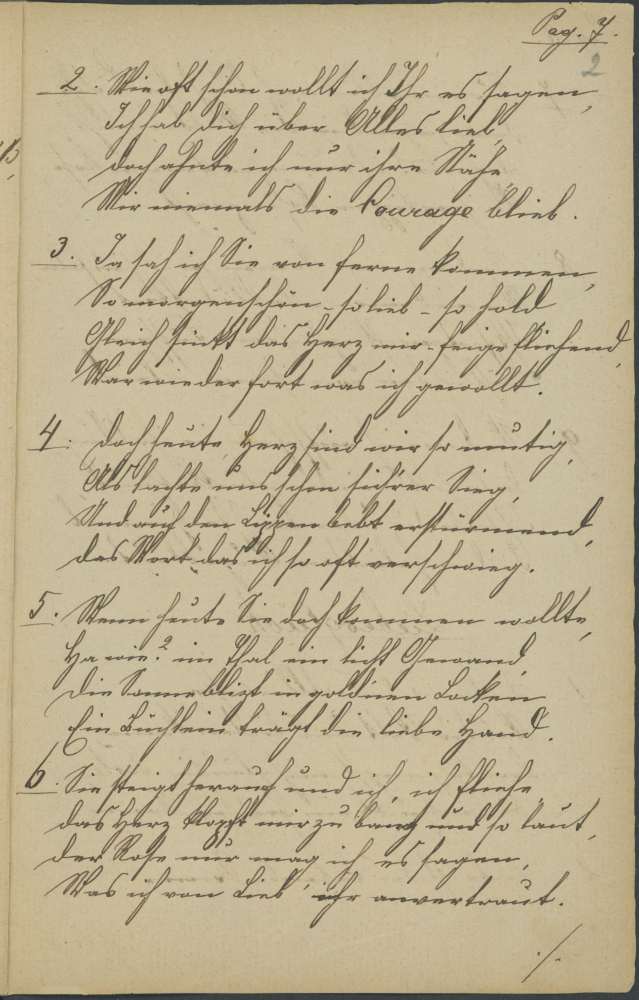 Pag. 7.
2
2. Wie oft schon wollt ich Ihr es sagen,
Ich hab dich über Alles lieb,
doch ahnte ich nur ihre Nähe
Mir niemals die Courage blieb.
3. Ja sah ich Sie von ferne kommen,
So morgenschön – so lieb – so hold
Gleich sinkt das Herz mir – feige fliehend,
War wieder fort was ich gewollt.
4. doch heute Herz sind wir so muthig,
Als lachte uns schon sichrer Sieg,
Und auf den Lippen bebt erstürmend,
das Wort das ich so oft verschwieg.
5. Wenn heute Sie doch kommen wollte,
Ha wie? im Thal ein licht Gewand,
die Sonne blizt in goldnen Locken
Ein Büchlein trägt die liebe Hand.
6. Sie steigt herauf und ich, ich fliehe
das Herz klopft mir zu bang und so laut,
der Rose nur mag ich es sagen,
Was ich von Lieb' ihr anvertraut.
./.